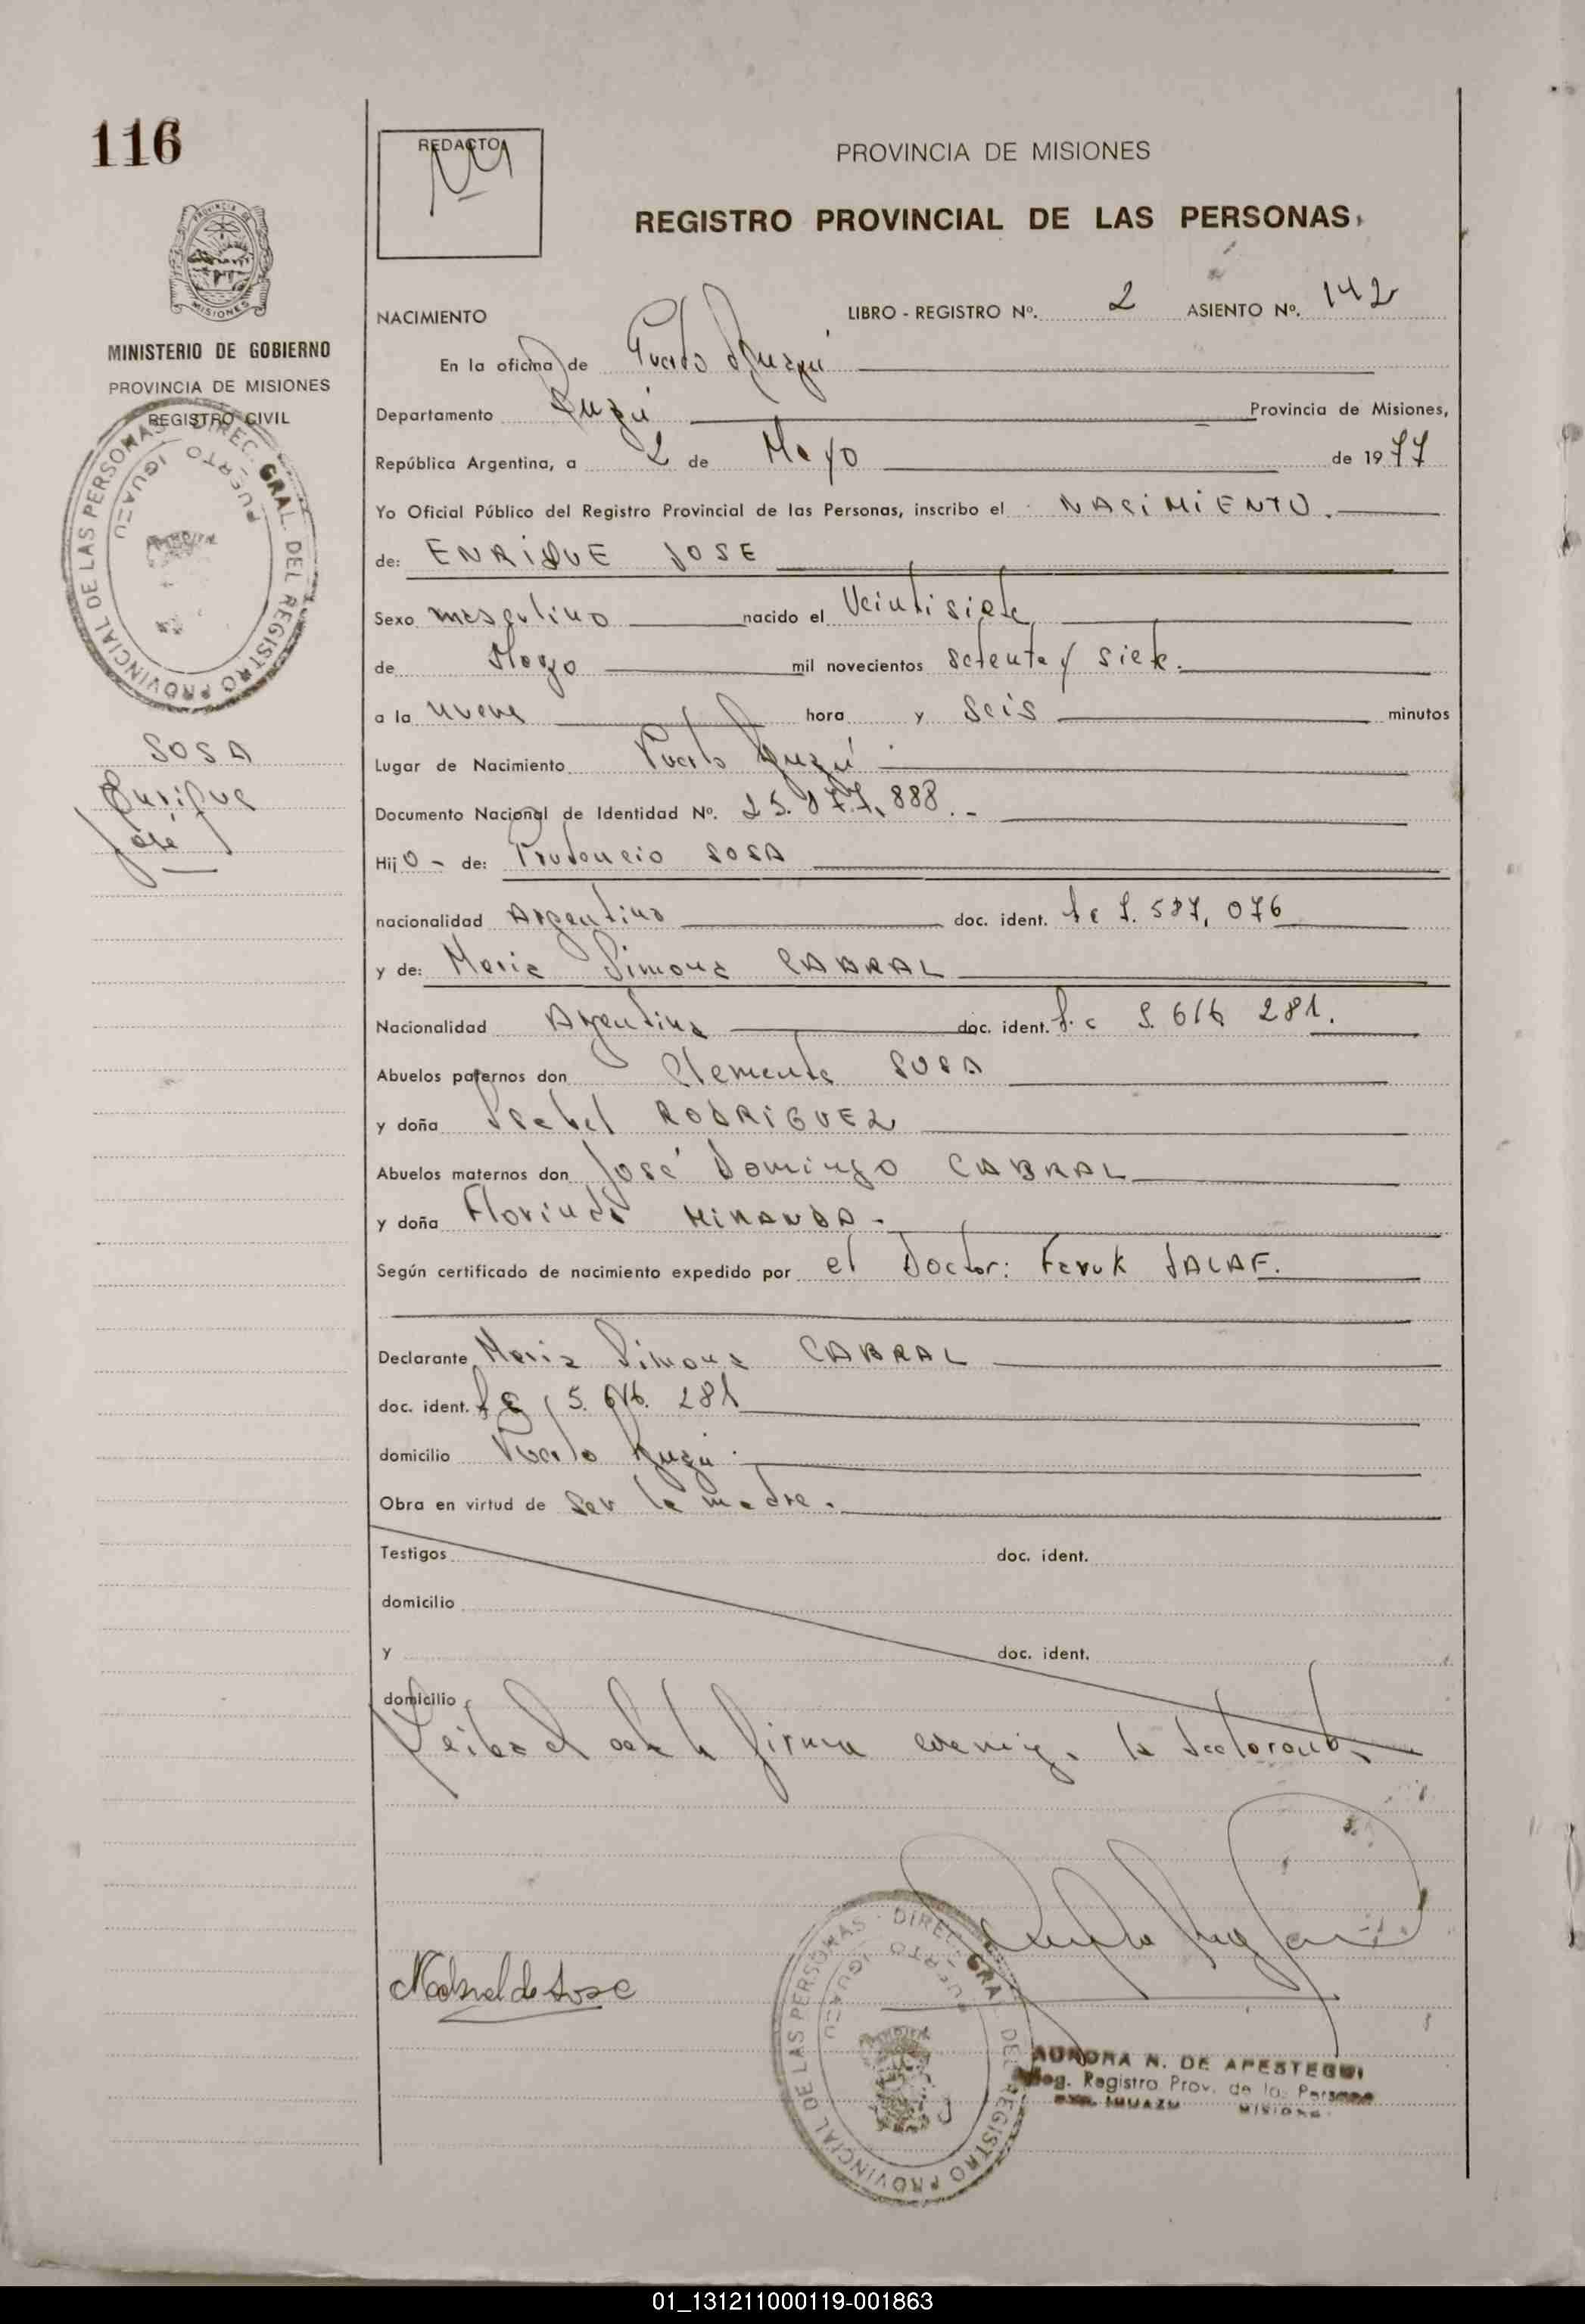 116
REDACTO
PROVINCIA DE MISIONES
REGISTRO PROVINCIAL DE LAS PERSONAS
PROVINCIA DE
MISIONES
MINISTERIO DE GOBIERNO
PROVINCIA DE MISIONES
REGISTRO CIVIL
DIREC. GRAL. DEL REGISTRO PROVINCIAL DE LAS PERSONAS
PUERTO IGUAZU
SOSA
Enrique
José
NACIMIENTO LIBRO - REGISTRO Nº. 2 ASIENTO Nº. 142
En la oficina de Puerto Iguazú
Departamento Iguazú Provincia de Misiones,
República Argentina, a 2 de Mayo de 1977
Yo Oficial Público del Registro Provincial de las Personas, inscribo el NACIMIENTO.
de: ENRIQUE JOSE
Sexo masculino nacido el Veintisiete
de Marzo mil novecientos setenta y siete.
a la nueve hora y seis minutos
Lugar de Nacimiento Puerto Iguazú
Documento Nacional de Identidad Nº. 25.077.888.-
Hijo - de: Prudencio SOSA
nacionalidad Argentino doc. ident. 587.076
y de: Maria Simona CABRAL
Nacionalidad Argentina doc. ident. L.c 5.616 281.
Abuelos paternos don Clemente SOSA
y doña Isabel RODRIGUEZ
Abuelos maternos don José Domingo CABRAL
y doña Florinda MIRANDA -
Según certificado de nacimiento expedido por el Doctor: Faruk JALAF.
Declarante Maria Simona CABRAL
doc. ident. Lc 5.616.281
domicilio Puerto Iguazú.
Obra en virtud de ser la madre.
Testigos doc. ident.
domicilio
y doc. ident.
domicilio
Leida el acta la firma conmigo, la declarante
MCabral de Sosa
DIREC. GRAL. DEL REGISTRO PROVINCIAL DE LAS PERSONAS
PUERTO IGUAZU
AURORA N. DE APESTEGUI
Reg. Registro Prov. de las Personas
IGUAZU MISIONES
01_131211000119-001863